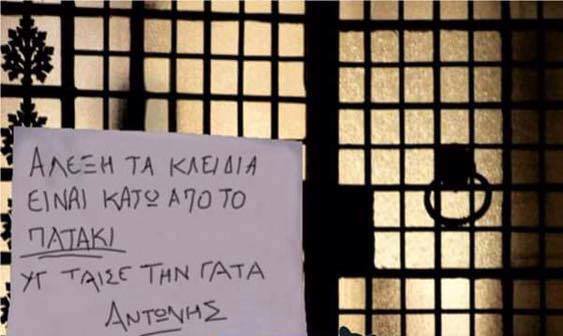 ΑΛΕΞΗ ΤΑ ΚΛΕΙΔΙΑ
ΕΙΝΑΙ ΚΑΤΩ ΑΠΟ ΤΟ
ΠΑΤΑΚΙ
ΥΓ ΤΑΙΣΕ ΤΗΝ ΓΑΤΑ
ΑΝΤΩΝΗΣ